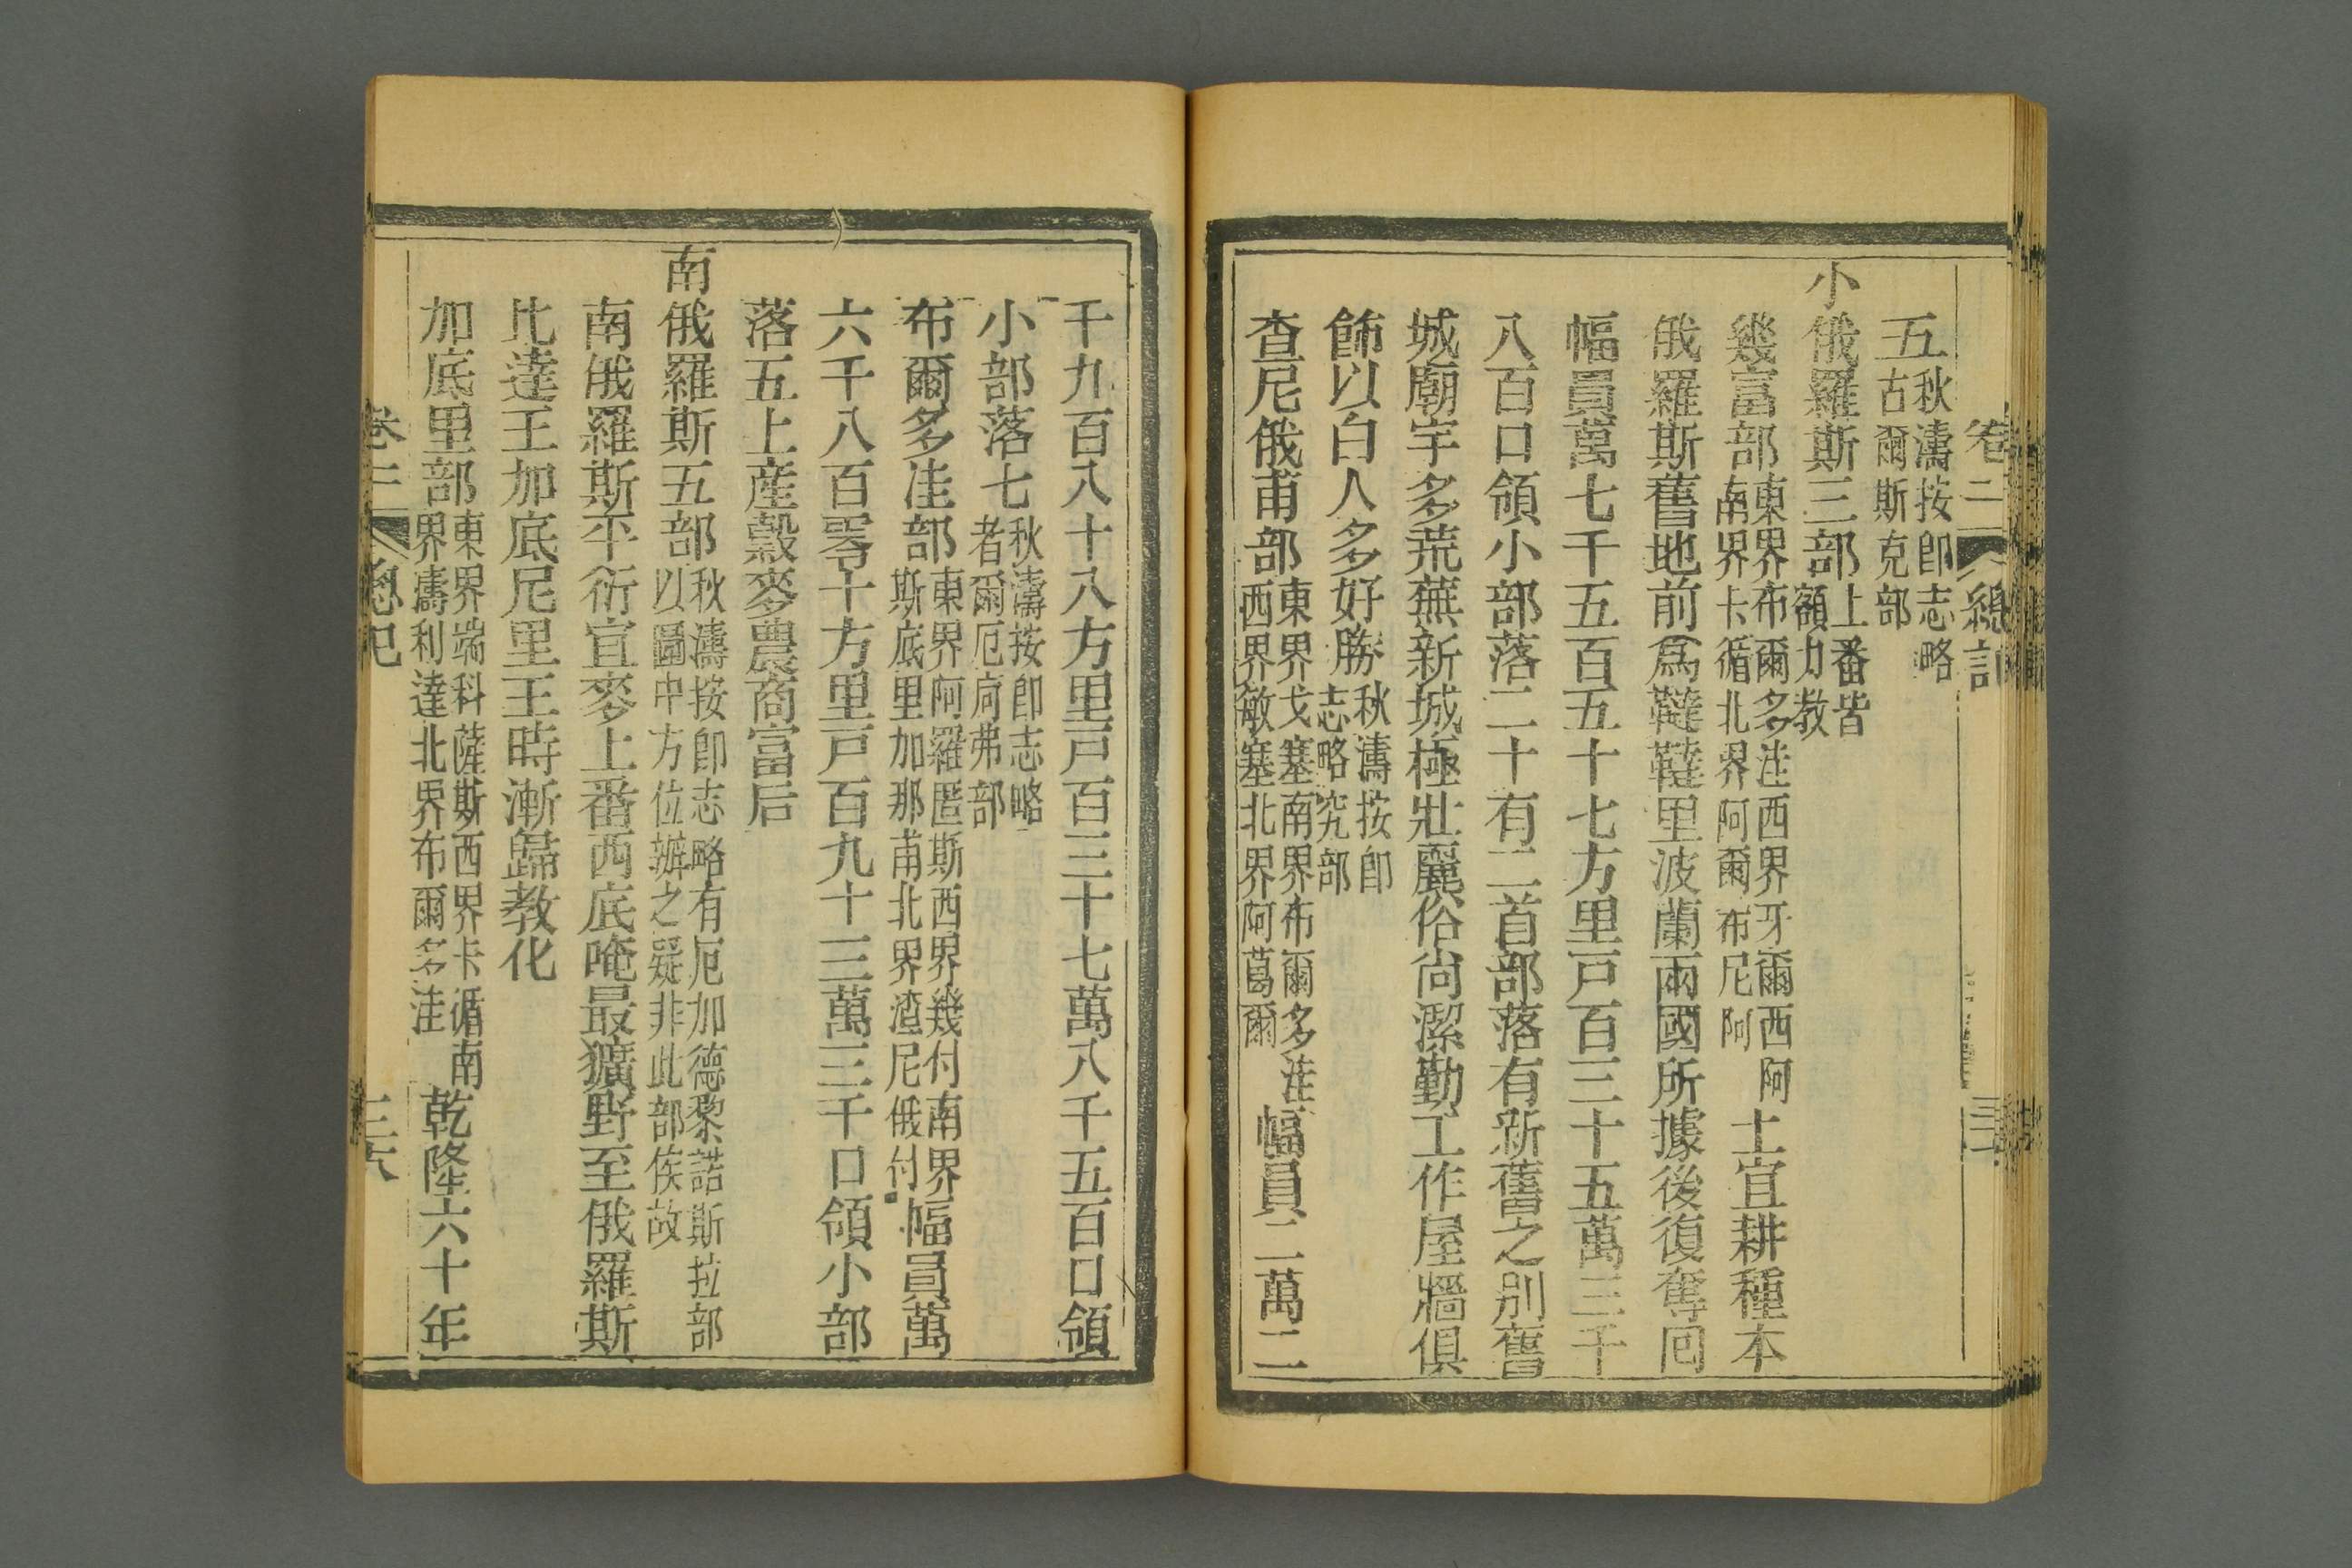 卷二 總記
五秋濤按卽志略古爾斯克部
小俄羅斯三部上番皆額力教
幾富部東界布爾多洼西界牙爾西阿南界卡循北界阿爾布尼阿土宜耕種本
俄羅斯舊地前爲韃韃里波蘭兩國所據後復奪囘
幅員萬七千五百五十七方里戸百三十五萬三千
八百口領小部落二十有二首部落有新舊之別舊
城廟宇多荒蕪新城極壯麗俗尚潔勤工作屋牆俱
飾以白人多好勝秋濤按卽志略究部
查尼俄甫部東界戈塞南界布爾多洼西界敏塞北界阿葛爾幅員二萬二
千九百八十八方里戸百三十七萬八千五百口領
小部落七秋濤按卽志略者爾厄疴弗部
布爾多洼部東界阿羅匿斯西界幾付南界斯底里加那甫北界渣尼俄付幅員萬
六千八百零十方里戸百九十三萬三千口領小部
落五上産穀麥農商富后
南俄羅斯五部秋濤按卽志略有厄加德黎諾斯拉部以圖中方位辦之疑非此部俟故
南俄羅斯平衍宜麥上番西底唵最獷野至俄羅斯
比達王加底尼里王時漸歸教化
加底里部東界端科薩斯西界卡循南界濤利達北界布爾多洼乾隆六十年
卷二 總記 三六